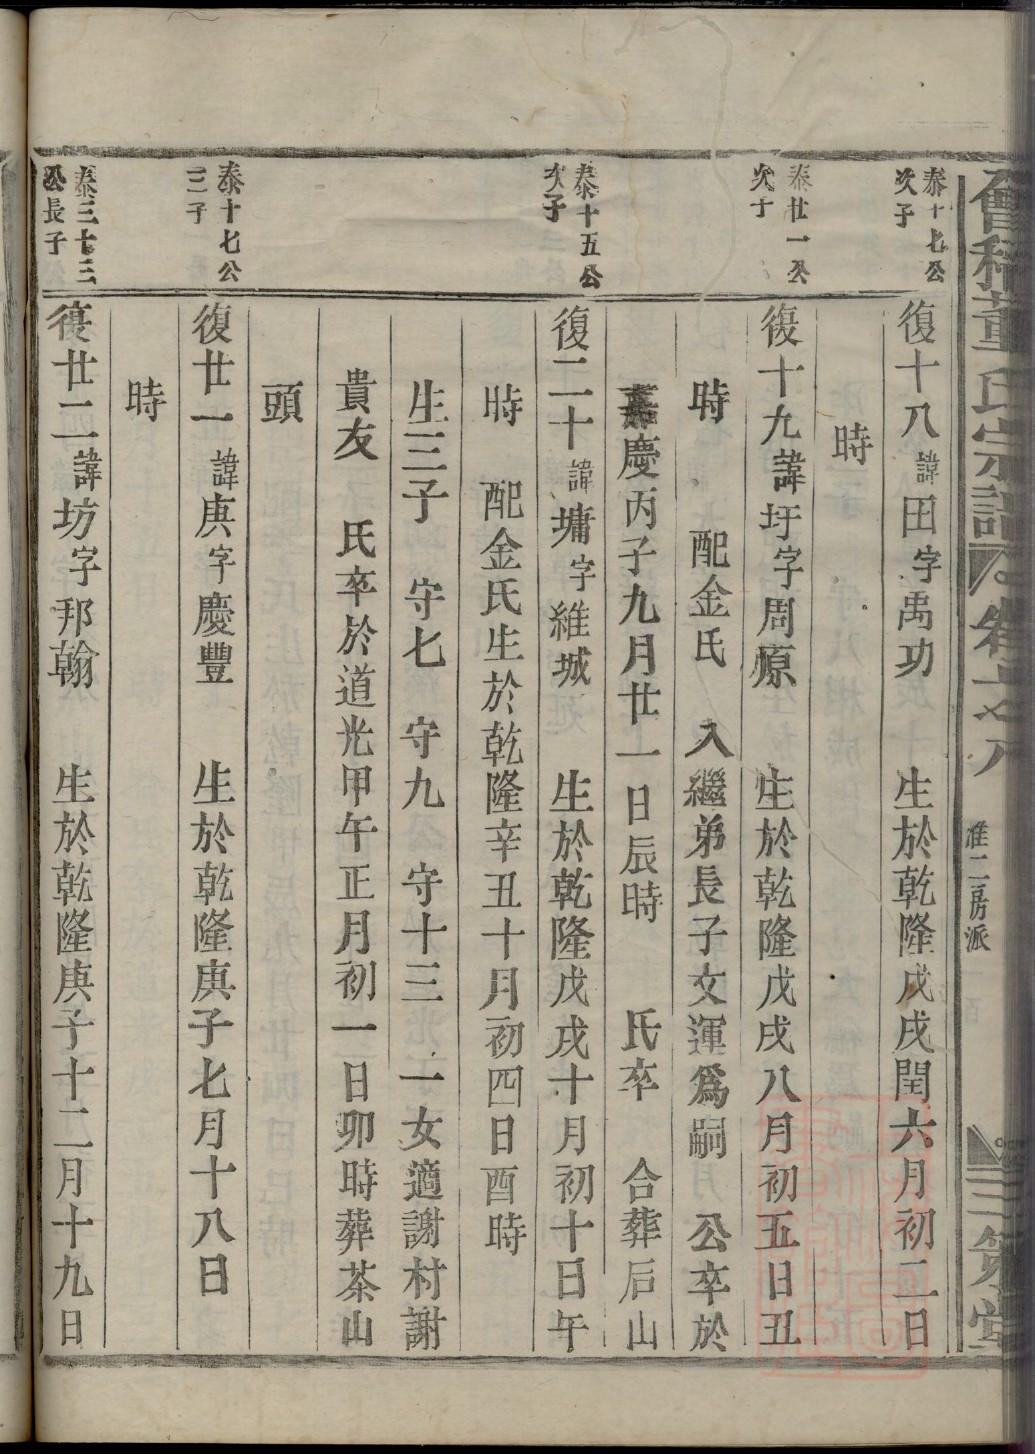 會稽董氏宗譜 卷之八 維二房派 三策堂
泰十七公
次子
復十八諱田字禹功 生於乾隆戊戌閏六月初二日
時
泰廿一公
次子
復十九諱圩字周原 生於乾隆戊戌八月初五日丑
時 配金氏 入繼弟長子文運爲嗣 公卒於
嘉慶丙子九月廿一日辰時 氏卒 合葬后山
泰十五公
次子
復二十諱墉字維城 生於乾隆戊戌十月初十日午
時 配金氏生於乾隆辛丑十月初四日酉時
生三子 守七 守九 守十三 一女適謝村謝
貴友 氏卒於道光甲午正月初一日卯時葬茶山
頭
泰十七公
三子
復廿一諱庚字慶豐 生於乾隆庚子七月十八日
時
泰三十三
公長子
復廿二諱坊字邦翰 生於乾隆庚子十二月十九日